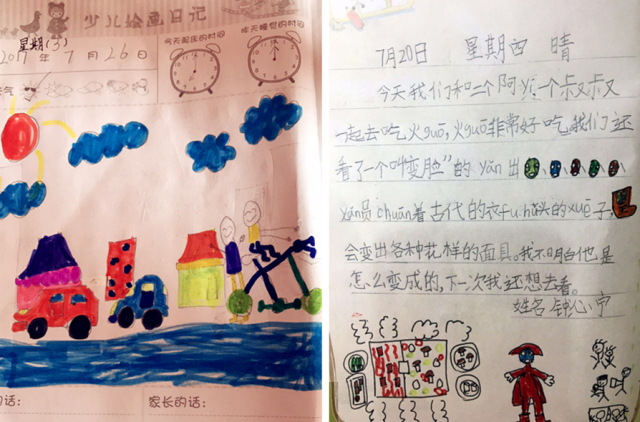 少儿绘画日记
星期(3)
2017年7月26日
今天起床的时间
昨天睡觉的时间
天气
的话:
家长的话:
7月20日 星期四 晴
今天我们和二个阿yí,一个叔叔
一起去吃火guō,火guō非常好吃。我们还
看了一个叫"变脸"的yǎn出
yǎn员chuān着古代的衣fu、hòu头的xuē子,
会变出各种花样的面具。我不明白他是
怎么变成的,下一次我还想去看。
姓名 钟心宁